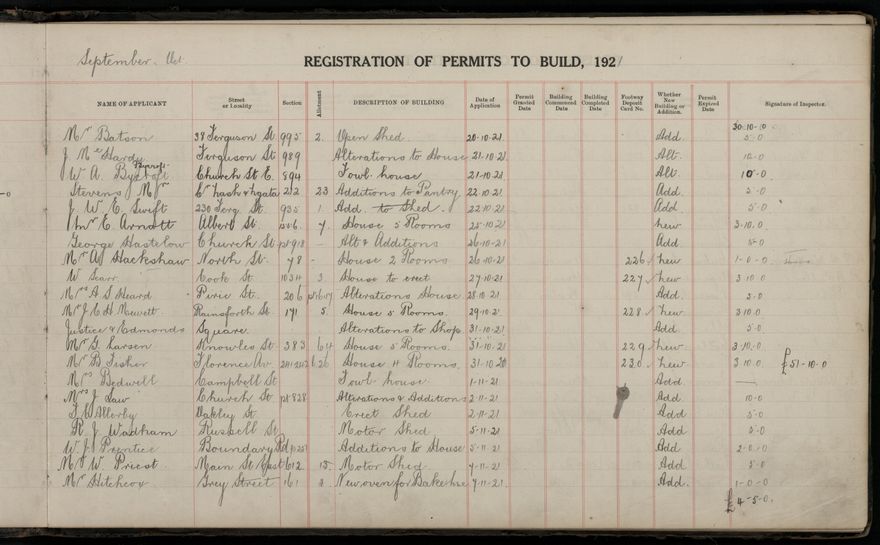 September. Oct.
REGISTRATION OF PERMITS TO BUILD, 1921
NAME OF APPLICANT Street or Locality Section Allotment DESCRIPTION OF BUILDING Date of Application Permit Granted Date Building Commenced Date Building Completed Date Footway Deposit Card No. Whether New Building or Addition. Permit Expired Date Signature of Inspector.
30-10-0
Mr Batson 38 Ferguson St. 995 2. Open Shed. 20-10-21 Add. 5-0
J. Mc Hardy Ferguson St 989 Alterations to House 21-10-21. Alt. 10-0
Bycroft
W A. Church St E. 894 Fowl house 21-10-21 Alt. 10-0
Stevens Mr 212 23 Additions to Pantry 22.10.21 Add. 5-0
J. W. E. Swift 230 Ferg. St. 935 1. Add. to Shed. 22.10.21 Add. 5-0
Mr E. Arnott Albert St. 7. House 5 Rooms 25-10-21 New 3-10.0
George Hastelow Church St. pt 918 — Alt & Additions 26-10-21 Add 5-0
Mr A. Hackshaw North St. 78 - House 2 Rooms 26-10-21 226 New 1-0-0
W Scarr Cook St 1034 3. House to erect 27-10-21 227 New 3 10 0
Mrs A S Heard Pirie St. 206 Alterations House 28.10.21 Add. 5-0
Mr J. C. H. Rainsforth St 171 5. House 5 Rooms. 29.10.21 228 New 3-10.0
Justice & Edmonds Square Alterations to Shop. 31-10-21 Add. 5-0
Mr G. Larsen Knowles St 383 64 House 5 Rooms. 31-10-21 229 New 3-10.0
Mr B. Fisher Florence Av. 26 House 4 Rooms. 31-10 230 New. 3.10.0 £51-10-0
Mrs Bedwell Campbell St Fowl house 1-11-21 Add —
Mrs J Law Church St pt 828 Alterations & Additions 2-11-21 Add. 10-0
Allerby Oakley St Erect Shed 2-11-21 Add 5-0
R. J. Wadham Russell St Motor Shed 5-11-21 Add 5-0
W. J. Prentice Boundary Rd Additions to House 5-11-21 Add 2-0-0
Mr W. Priest. Main St East 612 15. Motor Shed 7-11-21 Add 5-0
Mr Hitchcox Grey Street 161 New oven for Bake hse 7-11-21. Add. 1-0-0
£4-5-0.